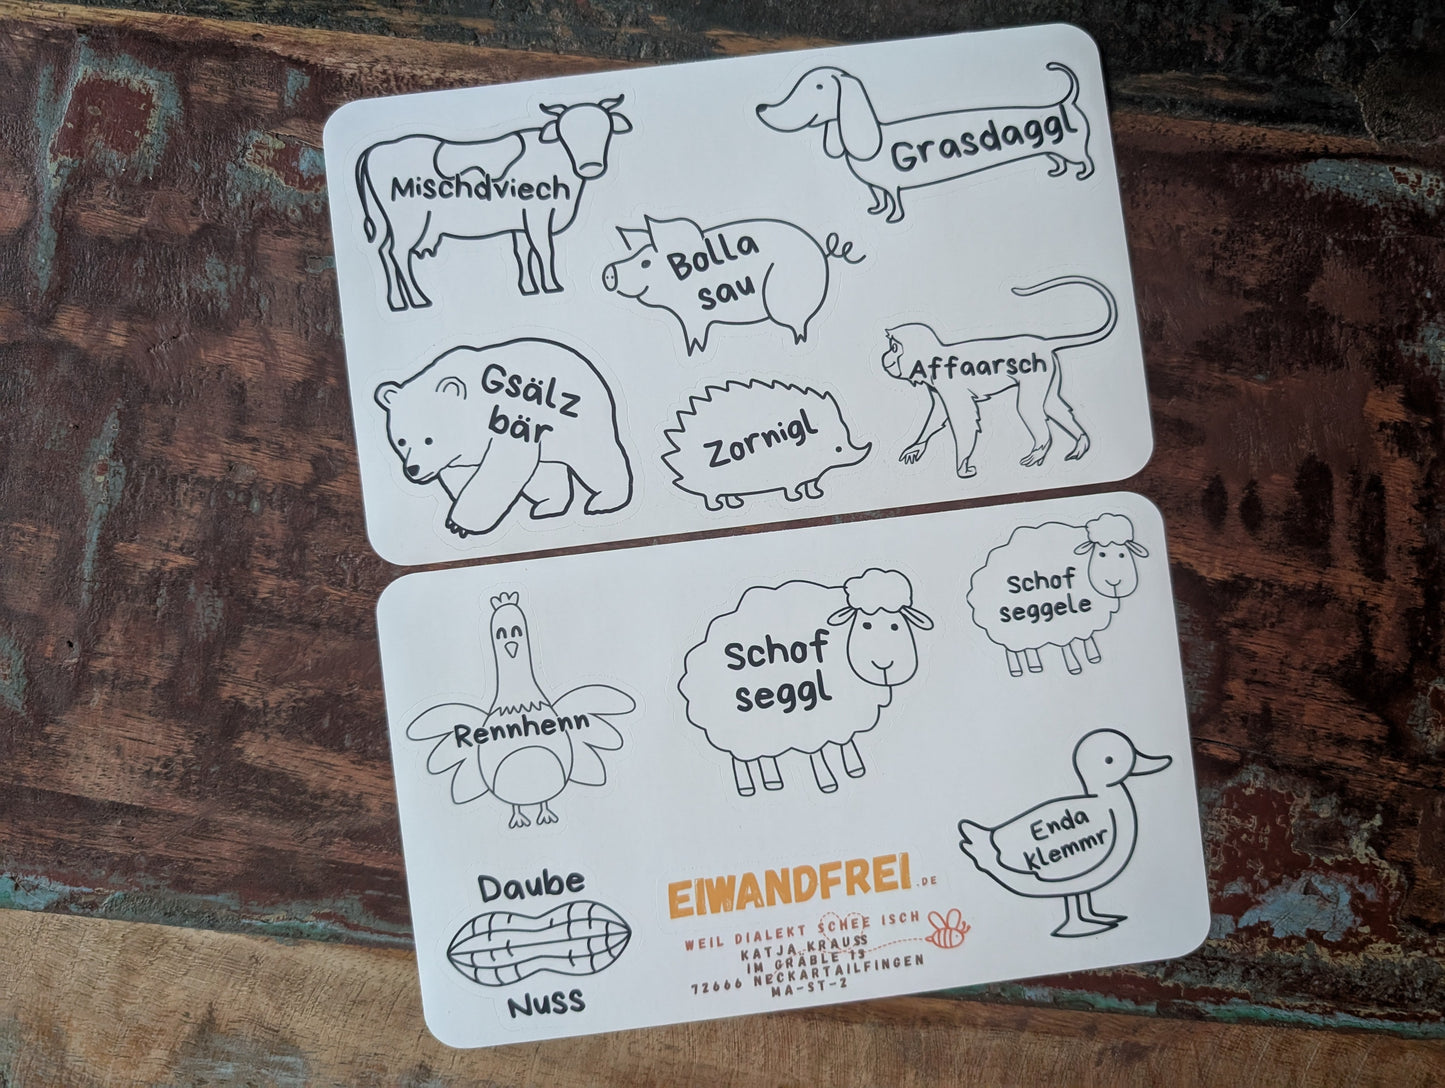 Mischdviech
Grasdaggl
Bolla
sau
Affaarsch
Gsälz
bär
Zornigl
Schof
seggele
Schof
seggl
Rennhenn
Enda
klemmr
Daube
Nuss
EIWANDFREI.DE
WEIL DIALEKT SCHEE ISCH
KATJA KRAUSS
IM GRÄBLE 15
72666 NECKARTAILFINGEN
MA-ST-2